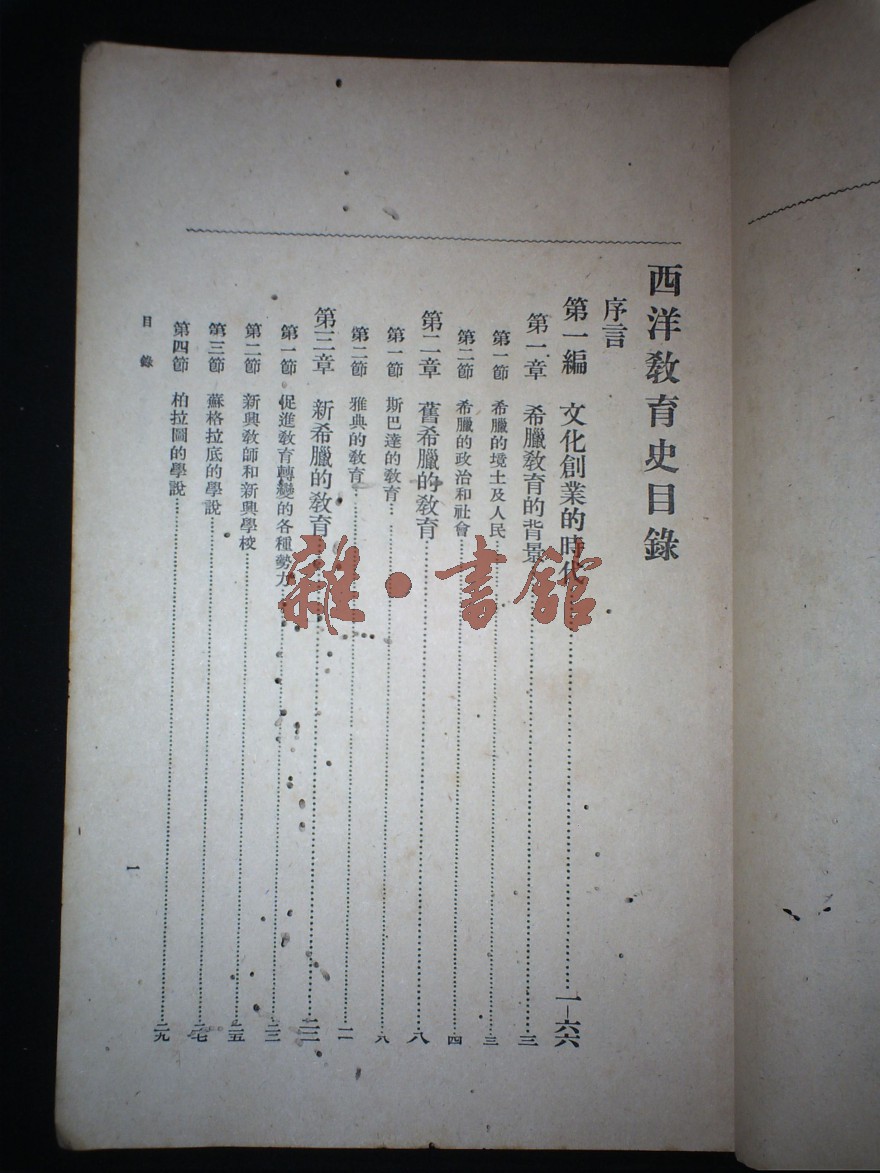 西洋教育史目錄
序言
第一編 文化創業的時代……一—六六
第一章 希臘教育的背景……三
第一節 希臘的境土及人民……三
第二節 希臘的政治和社會……四
第二章 舊希臘的教育……八
第一節 斯巴達的教育……八
第二節 雅典的教育……一一
第三章 新希臘的教育……二二
第一節 促進教育轉變的各種勢力……二二
第二節 新興教師和新興學校……二五
第三節 蘇格拉底的學說……二七
第四節 柏拉圖的學說……二九
目錄
一
雜·書館